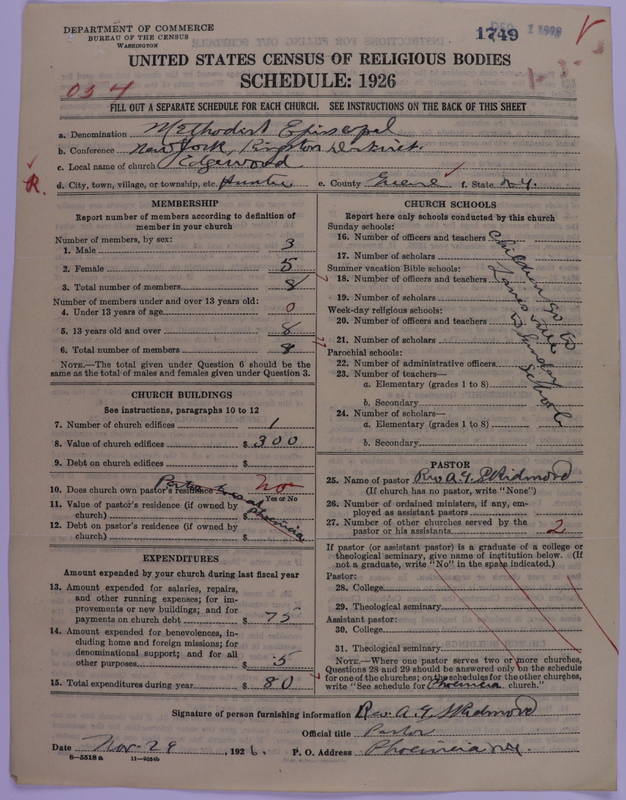 DEPARTMENT OF COMMERCE
BUREAU OF THE CENSUS
WASHINGTON
1749
DEC 1 1928
UNITED STATES CENSUS OF RELIGIOUS BODIES
SCHEDULE: 1926
034
FILL OUT A SEPARATE SCHEDULE FOR EACH CHURCH. SEE INSTRUCTIONS ON THE BACK OF THIS SHEET
a. Denomination Methodist Episcopal
b. Conference New York, Kingston District.
c. Local name of church Edgewood
R.
d. City, town, village, or township, etc. Hunter e. County Greene f. State N.Y.
MEMBERSHIP
Report number of members according to definition of
member in your church
Number of members, by sex:
1. Male 3
2. Female 5
3. Total number of members 8
Number of members under and over 13 years old:
4. Under 13 years of age 0
5. 13 years old and over 8
6. Total number of members 8
NOTE.—The total given under Question 6 should be
the same as the total of males and females given under Question 3.
CHURCH BUILDINGS
See instructions, paragraphs 10 to 12
7. Number of church edifices 1
8. Value of church edifices $ 300
9. Debt on church edifices $
10. Does church own pastor's residence No
Yes or No
Pastor lives at Phoenicia
11. Value of pastor's residence (if owned by
church) $
12. Debt on pastor's residence (if owned by
church) $
EXPENDITURES
Amount expended by your church during last fiscal year
13. Amount expended for salaries, repairs,
and other running expenses; for im-
provements or new buildings; and for
payments on church debt $ 75
14. Amount expended for benevolences, in-
cluding home and foreign missions; for
denominational support; and for all
other purposes $ 5
15. Total expenditures during year $ 80
CHURCH SCHOOLS
Report here only schools conducted by this church
Sunday schools:
16. Number of officers and teachers
17. Number of scholars
Summer vacation Bible schools:
18. Number of officers and teachers
19. Number of scholars
Week-day religious schools:
20. Number of officers and teachers
21. Number of scholars
Parochial schools:
22. Number of administrative officers
23. Number of teachers—
a. Elementary (grades 1 to 8)
b. Secondary
24. Number of scholars—
a. Elementary (grades 1 to 8)
b. Secondary
Children go to
Lanesville
Sunday
School
PASTOR
25. Name of pastor Rev A. G. Skidmore
(If church has no pastor, write "None")
26. Number of ordained ministers, if any, em-
ployed as assistant pastors
27. Number of other churches served by the
pastor or his assistants 2
If pastor (or assistant pastor) is a graduate of a college or
theological seminary, give name of institution below. (If
not a graduate, write "No" in the space indicated.)
Pastor:
28. College
29. Theological seminary
Assistant pastor:
30. College
31. Theological seminary
NOTE.—Where one pastor serves two or more churches,
Questions 28 and 29 should be answered only on the schedule
for one of the churches; on the schedules for the other churches,
write "See schedule for Phoenicia church."
Signature of person furnishing information Rev. A. G. Skidmore
Official title Pastor
Date Nov-29, 1926. P. O. Address Phoenicia N.Y.
8—5518 a 11—9064b